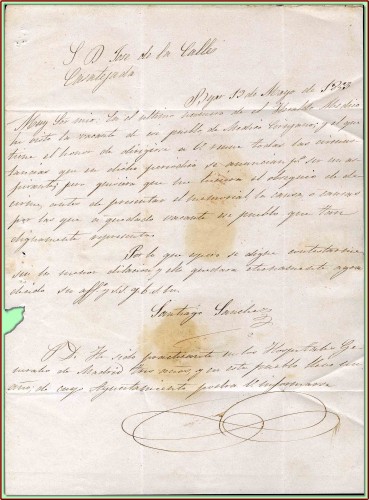 S. D. Jose de la Calle
Casatejada
Bejar 13 de Mayo de
Muy Sr. mio: En el ultimo numero de el Heraldo Medico
he visto la vacante de su pueblo de Medico Cirujano; y el que
tiene el honor de dirigirse a V. reune todas las circuns
tancias que en dicho periodico se anuncian pª ser un as
pirante; pero quisiera que me hiciera el obsequio de de
cirme, antes de presentar el memorial la causa o causas
por las que a quedado vacante su pueblo que tan
dignamente representa.
Por lo que espero se digne contestarme
sin la menor dilacion y le quedara eternamente agra
decido su aff.º y S. S. q. b. s. m.
Santiago Sanchez
P. D. He sido practicante en los Hospitales Ge
nerales de Madrid tres años, y en este pueblo llevo un
año, de cuyo Ayuntamiento podra V. informarse